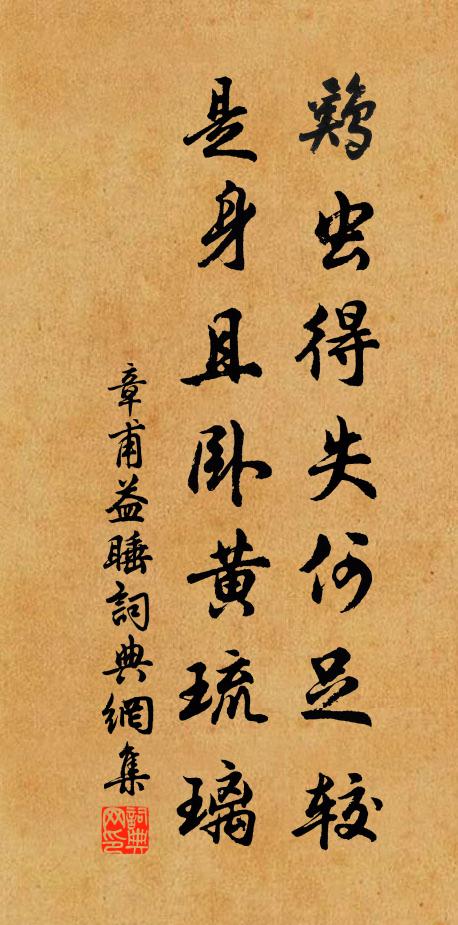 鷄虫得失何足较
是身且卧黄琉璃
章甫益睡詞典網集
詞典网印